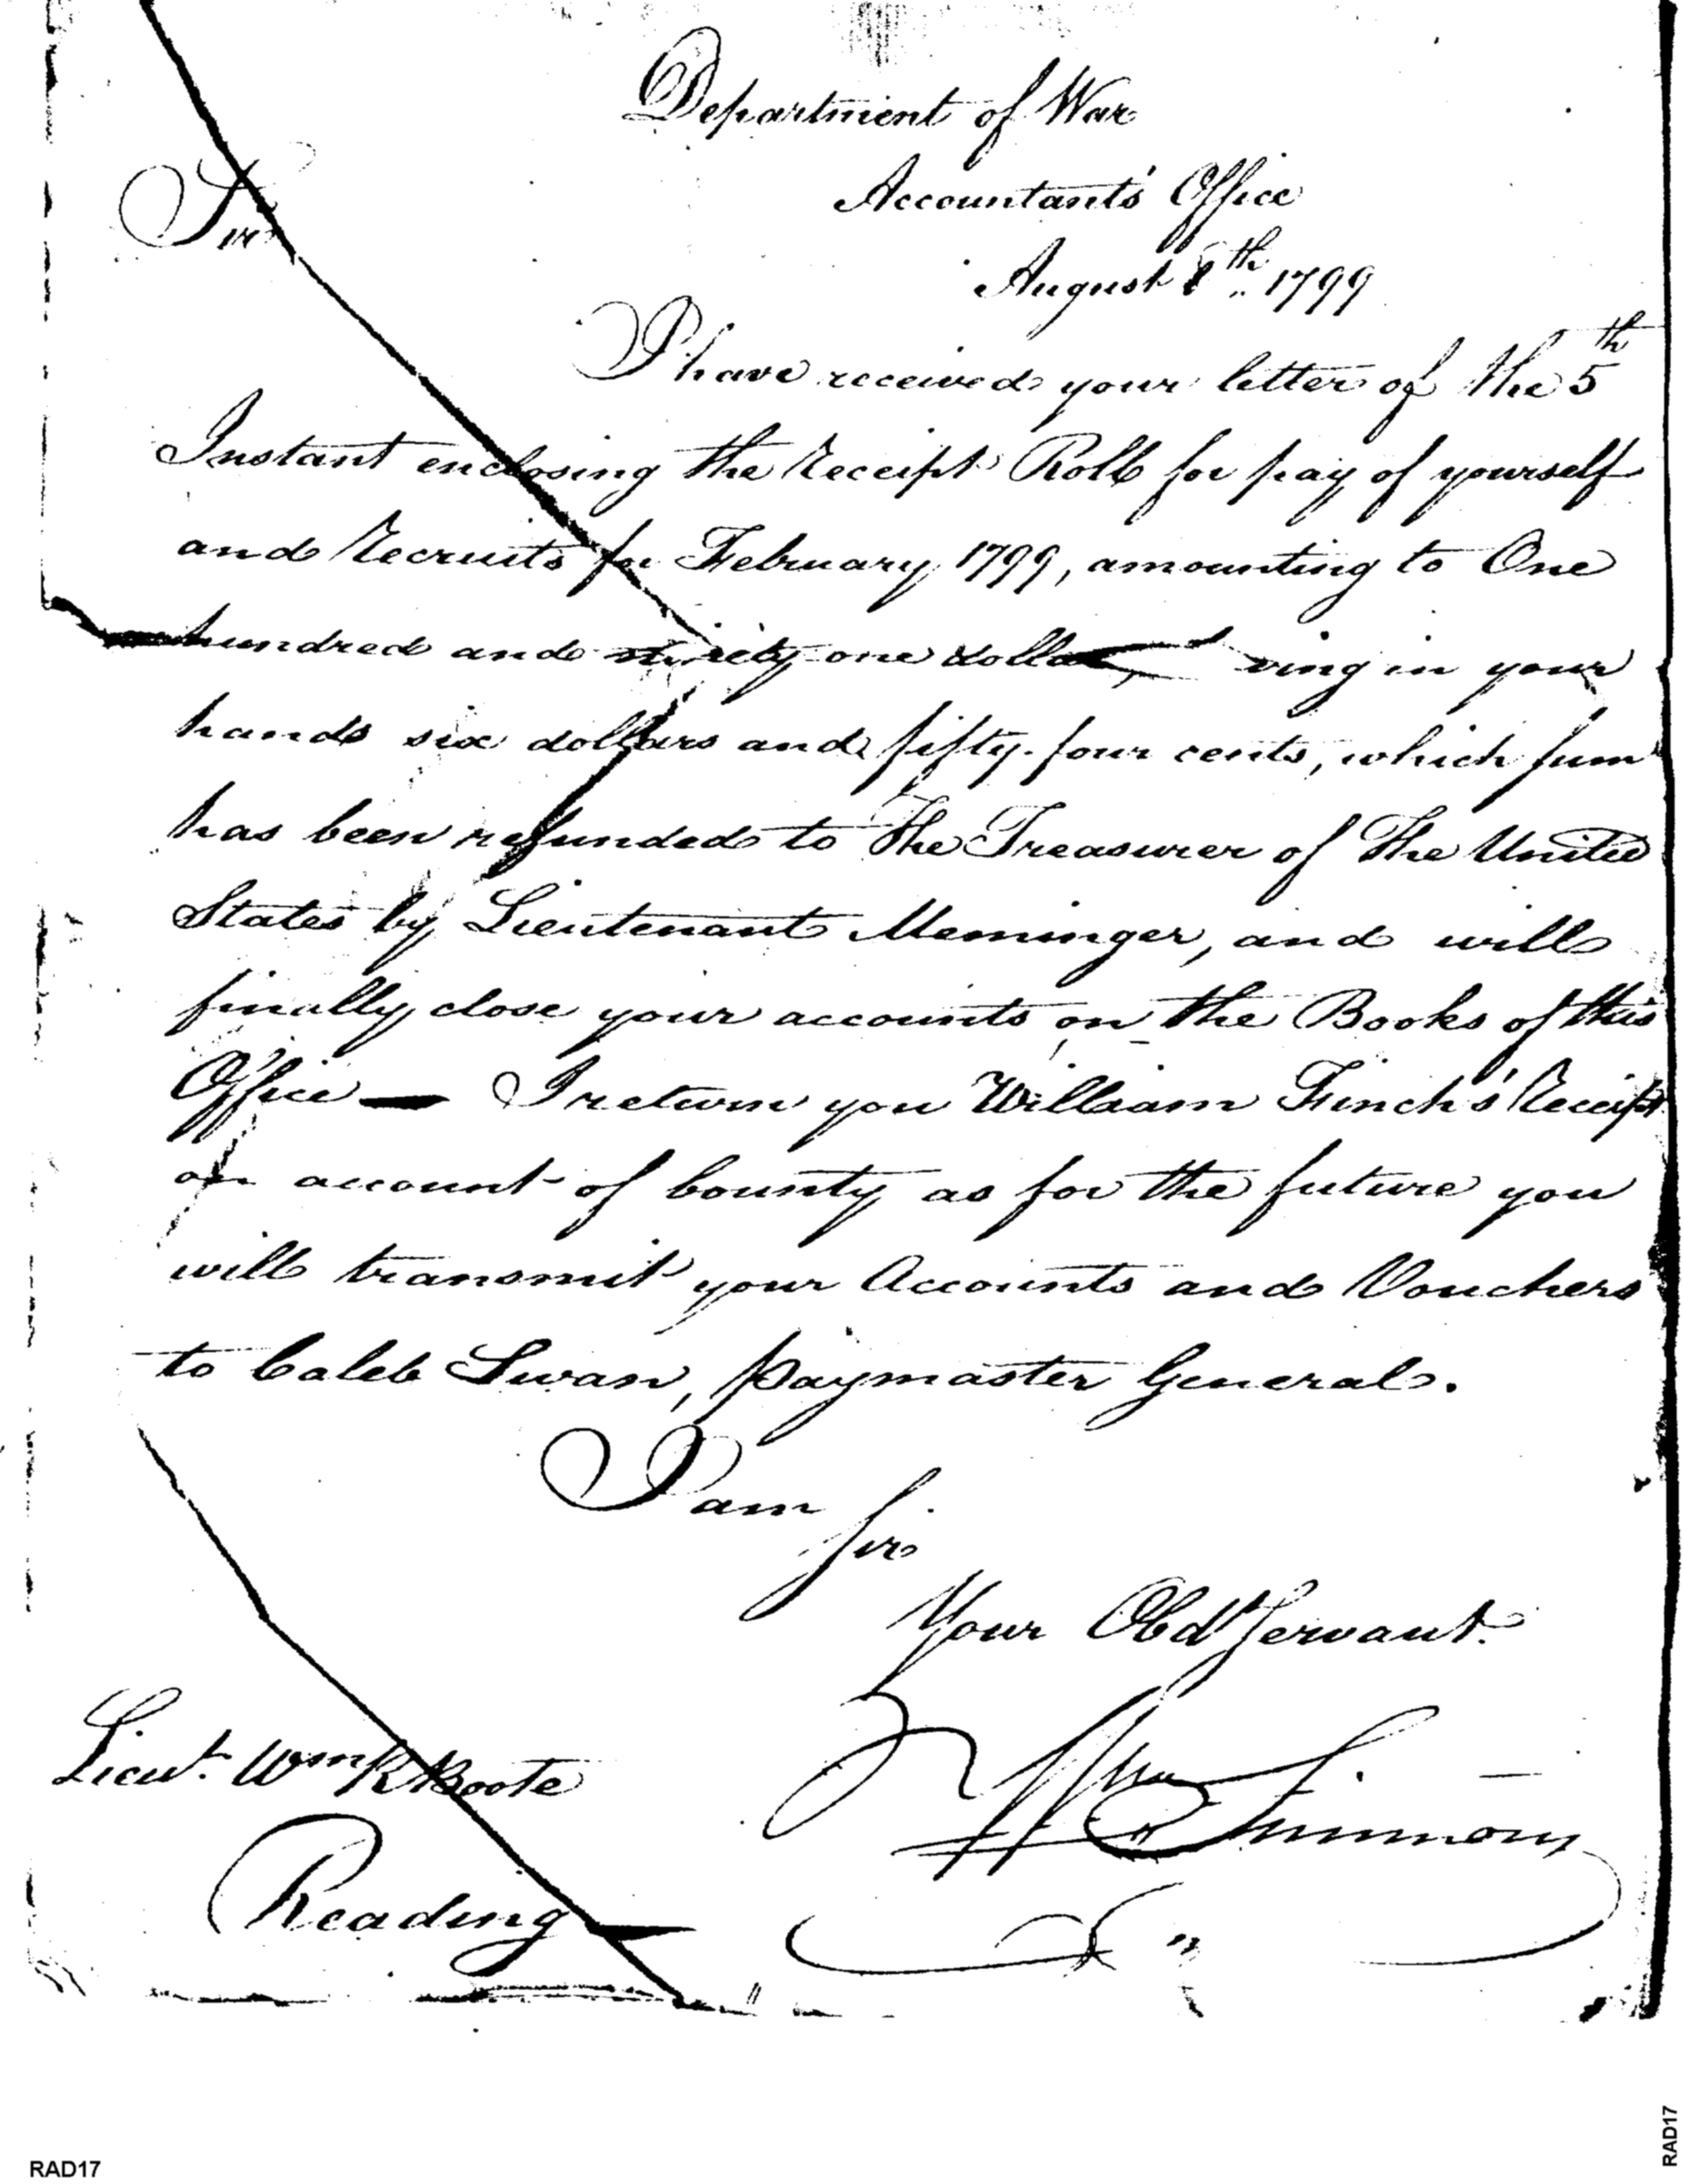 Department of War
Accountant's Office
August 8th 1799
Sir
I have received your letter of the 5th
Instant enclosing the Receipt Roll for pay of yourself
and Recruits for February 1799, amounting to One
hundred and ninety one dollars, ving in your
hands six dollars and fifty four cents, which sum
has been refunded to The Treasurer of The United
States by Lieutenant Meminger, and will
finally close your accounts on the Books of this
Office — I return you William Finch's Receipt
on account of bounty as for the future you
will transmit your Accounts and Vouchers
to Caleb Swan, paymaster General.
I am
Sir
Your Obdt Servant.
Wm Simmons
Lieut. Wm K Boote
Reading
RAD17
RAD17